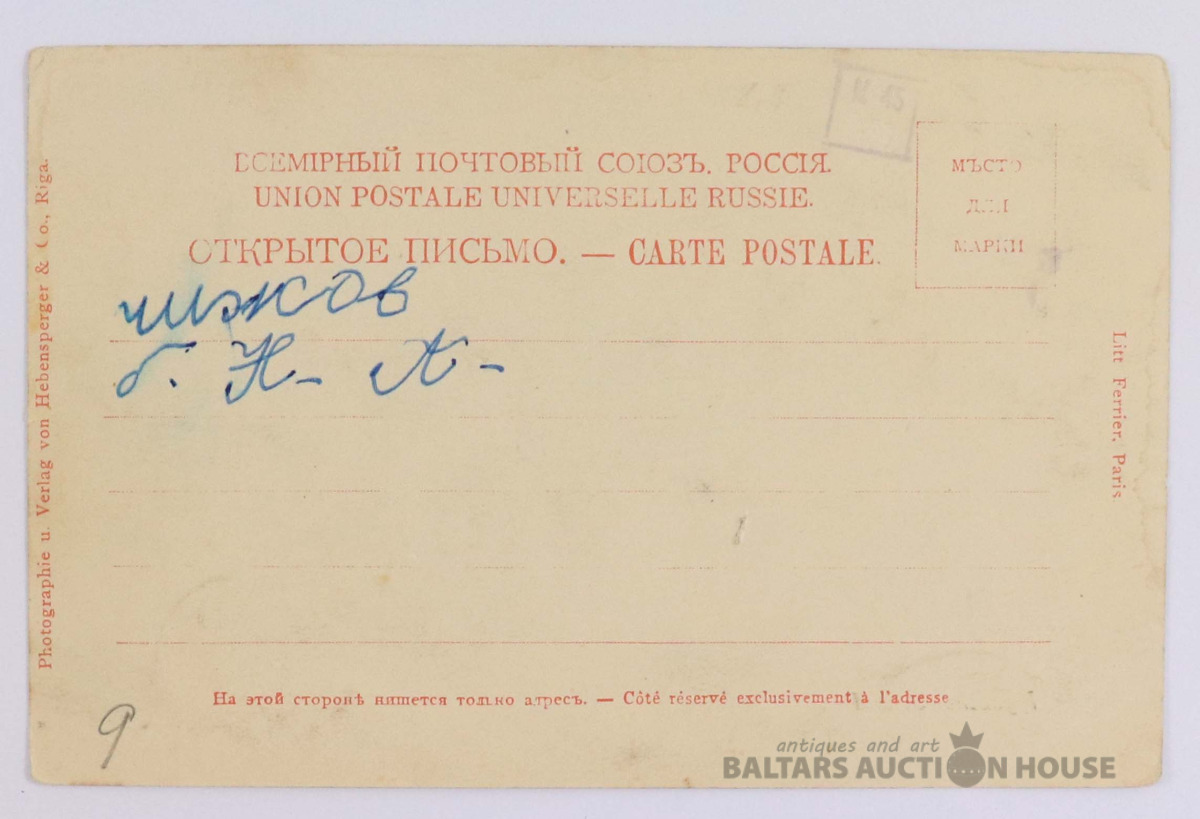 ВСЕМІРНЫЙ ПОЧТОВЫЙ СОЮЗЪ. РОССІЯ.
UNION POSTALE UNIVERSELLE RUSSIE.
ОТКРЫТОЕ ПИСЬМО. — CARTE POSTALE.
МѢСТО
ДЛЯ
МАРКИ
чижов
б. Н. А.
Photographie u. Verlag von Hebensperger & Co., Riga.
Litt Ferrier, Paris.
На этой сторонѣ пишется только адресъ. — Côté réservé exclusivement à l'adresse
9
antiques and art
BALTARS AUCTION HOUSE